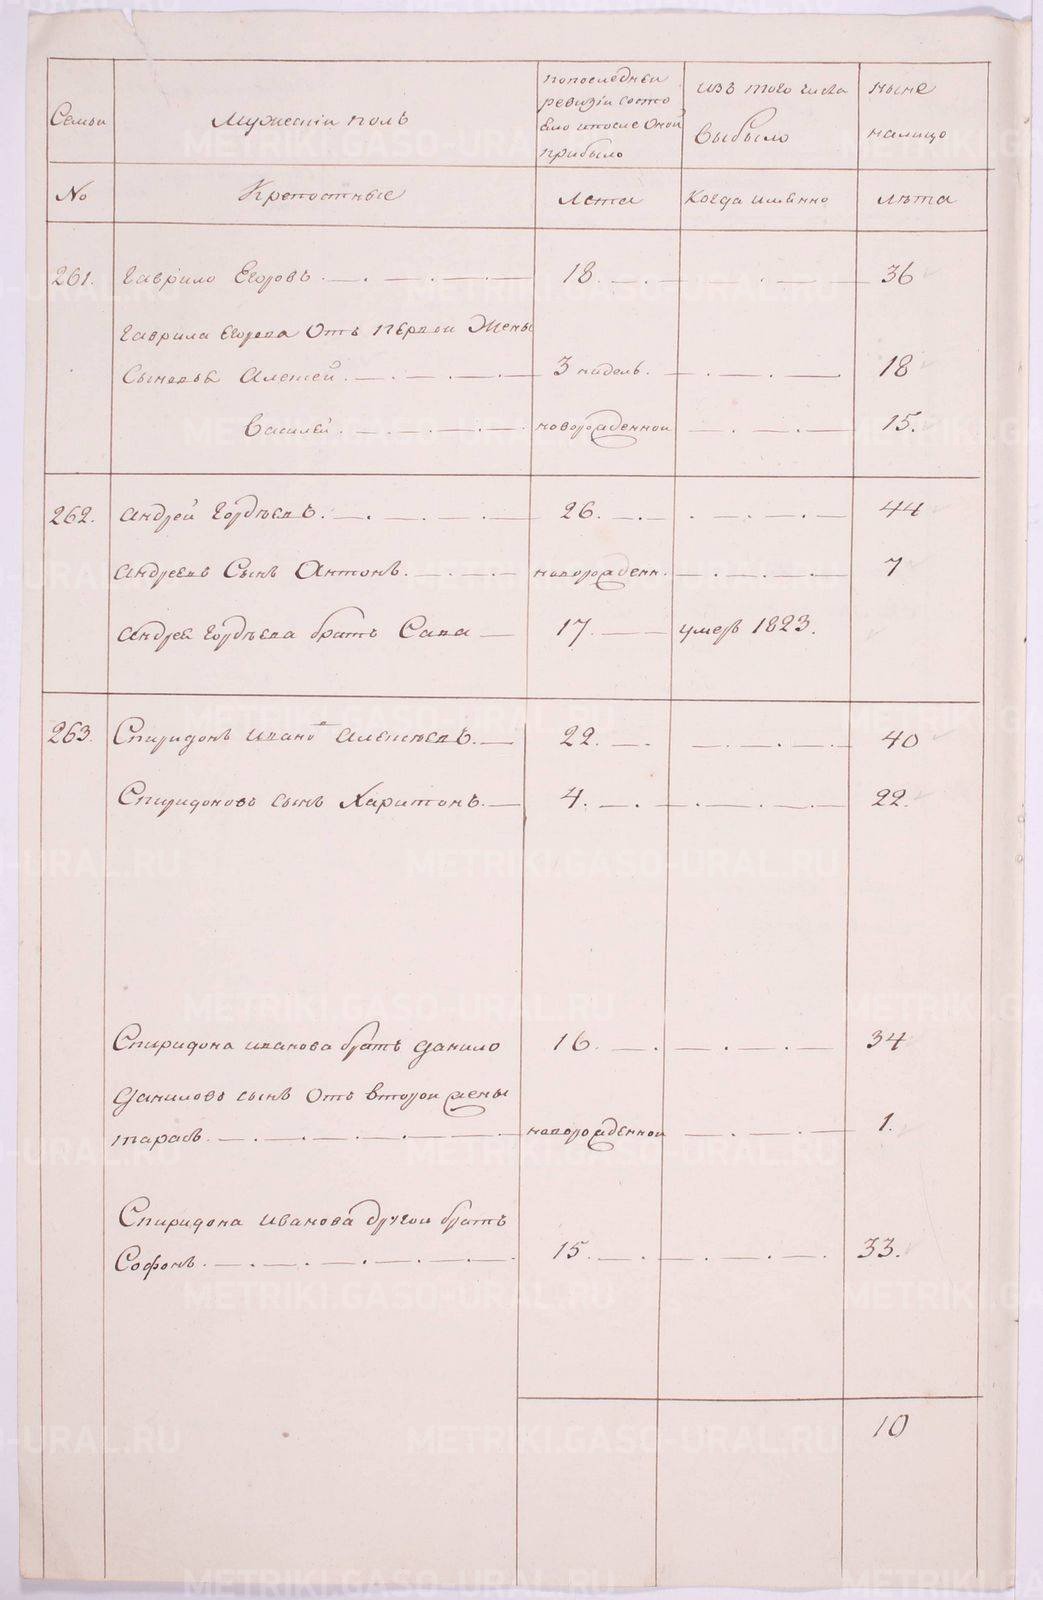 Семьи
Мужескiй полъ
попоследней
ревизiи состо
яло ипосле оной
прибыло
изъ того числа
выбыло
ныне
налицо
No
Крепостные
Лета
Когда имянно
лѣта
261. Гаврило Егоровъ 18. 36
Гаврила Егорова Отъ Первой Жены
Сыновья Алексей 3 недель. 18
Василей новорожденной 15.
262. Андрей Гордѣевъ. 26. 44
Андреевъ Сынъ Антонъ. новорожденн. 7
Андрея Гордѣева братъ Сава 17. умеръ 1823.
263. Спиридонъ Ивано Алексѣевъ. 22. 40
Спиридоновъ сынъ Харитонъ. 4. 22.
Спиридона иванова братъ Данило 16. 34
Даниловъ сынъ Отъ второй жены
тарасъ. новорожденной 1.
Спиридона Иванова другой братъ
Софонъ. 15. 33.
10
METRIKI.GASO-URAL.RU